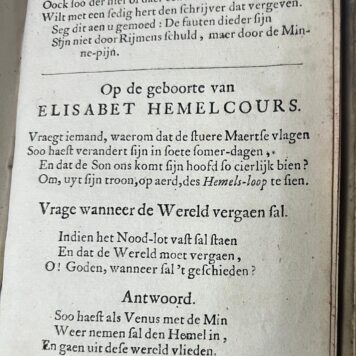 Oock soo der
Wilt met een sedig hert den schrijver dat vergeven.
Seg dit aen u gemoed : De fauten dieder sijn
Sijn niet door Rijmens schuld, maer door de Min-
ne-pijn.
Op de geboorte van
ELISABET HEMELCOURS.
Vraegt iemand, waerom dat de stuere Maertse vlagen
Soo haest verandert sijn in soete somer-dagen,
En dat de Son ons komt sijn hoofd so cierlijk bien?
Om, uyt sijn troon, op aerd, des Hemels-loop te sien.
Vrage wanneer de Wereld vergaen sal.
Indien het Nood-lot vast sal staen
En dat de Wereld moet vergaen,
O! Goden, wanneer sal 't geschieden?
Antwoord.
Soo haest als Venus met de Min
Weer nemen sal den Hemel in,
En gaen uit dese wereld vlieden.